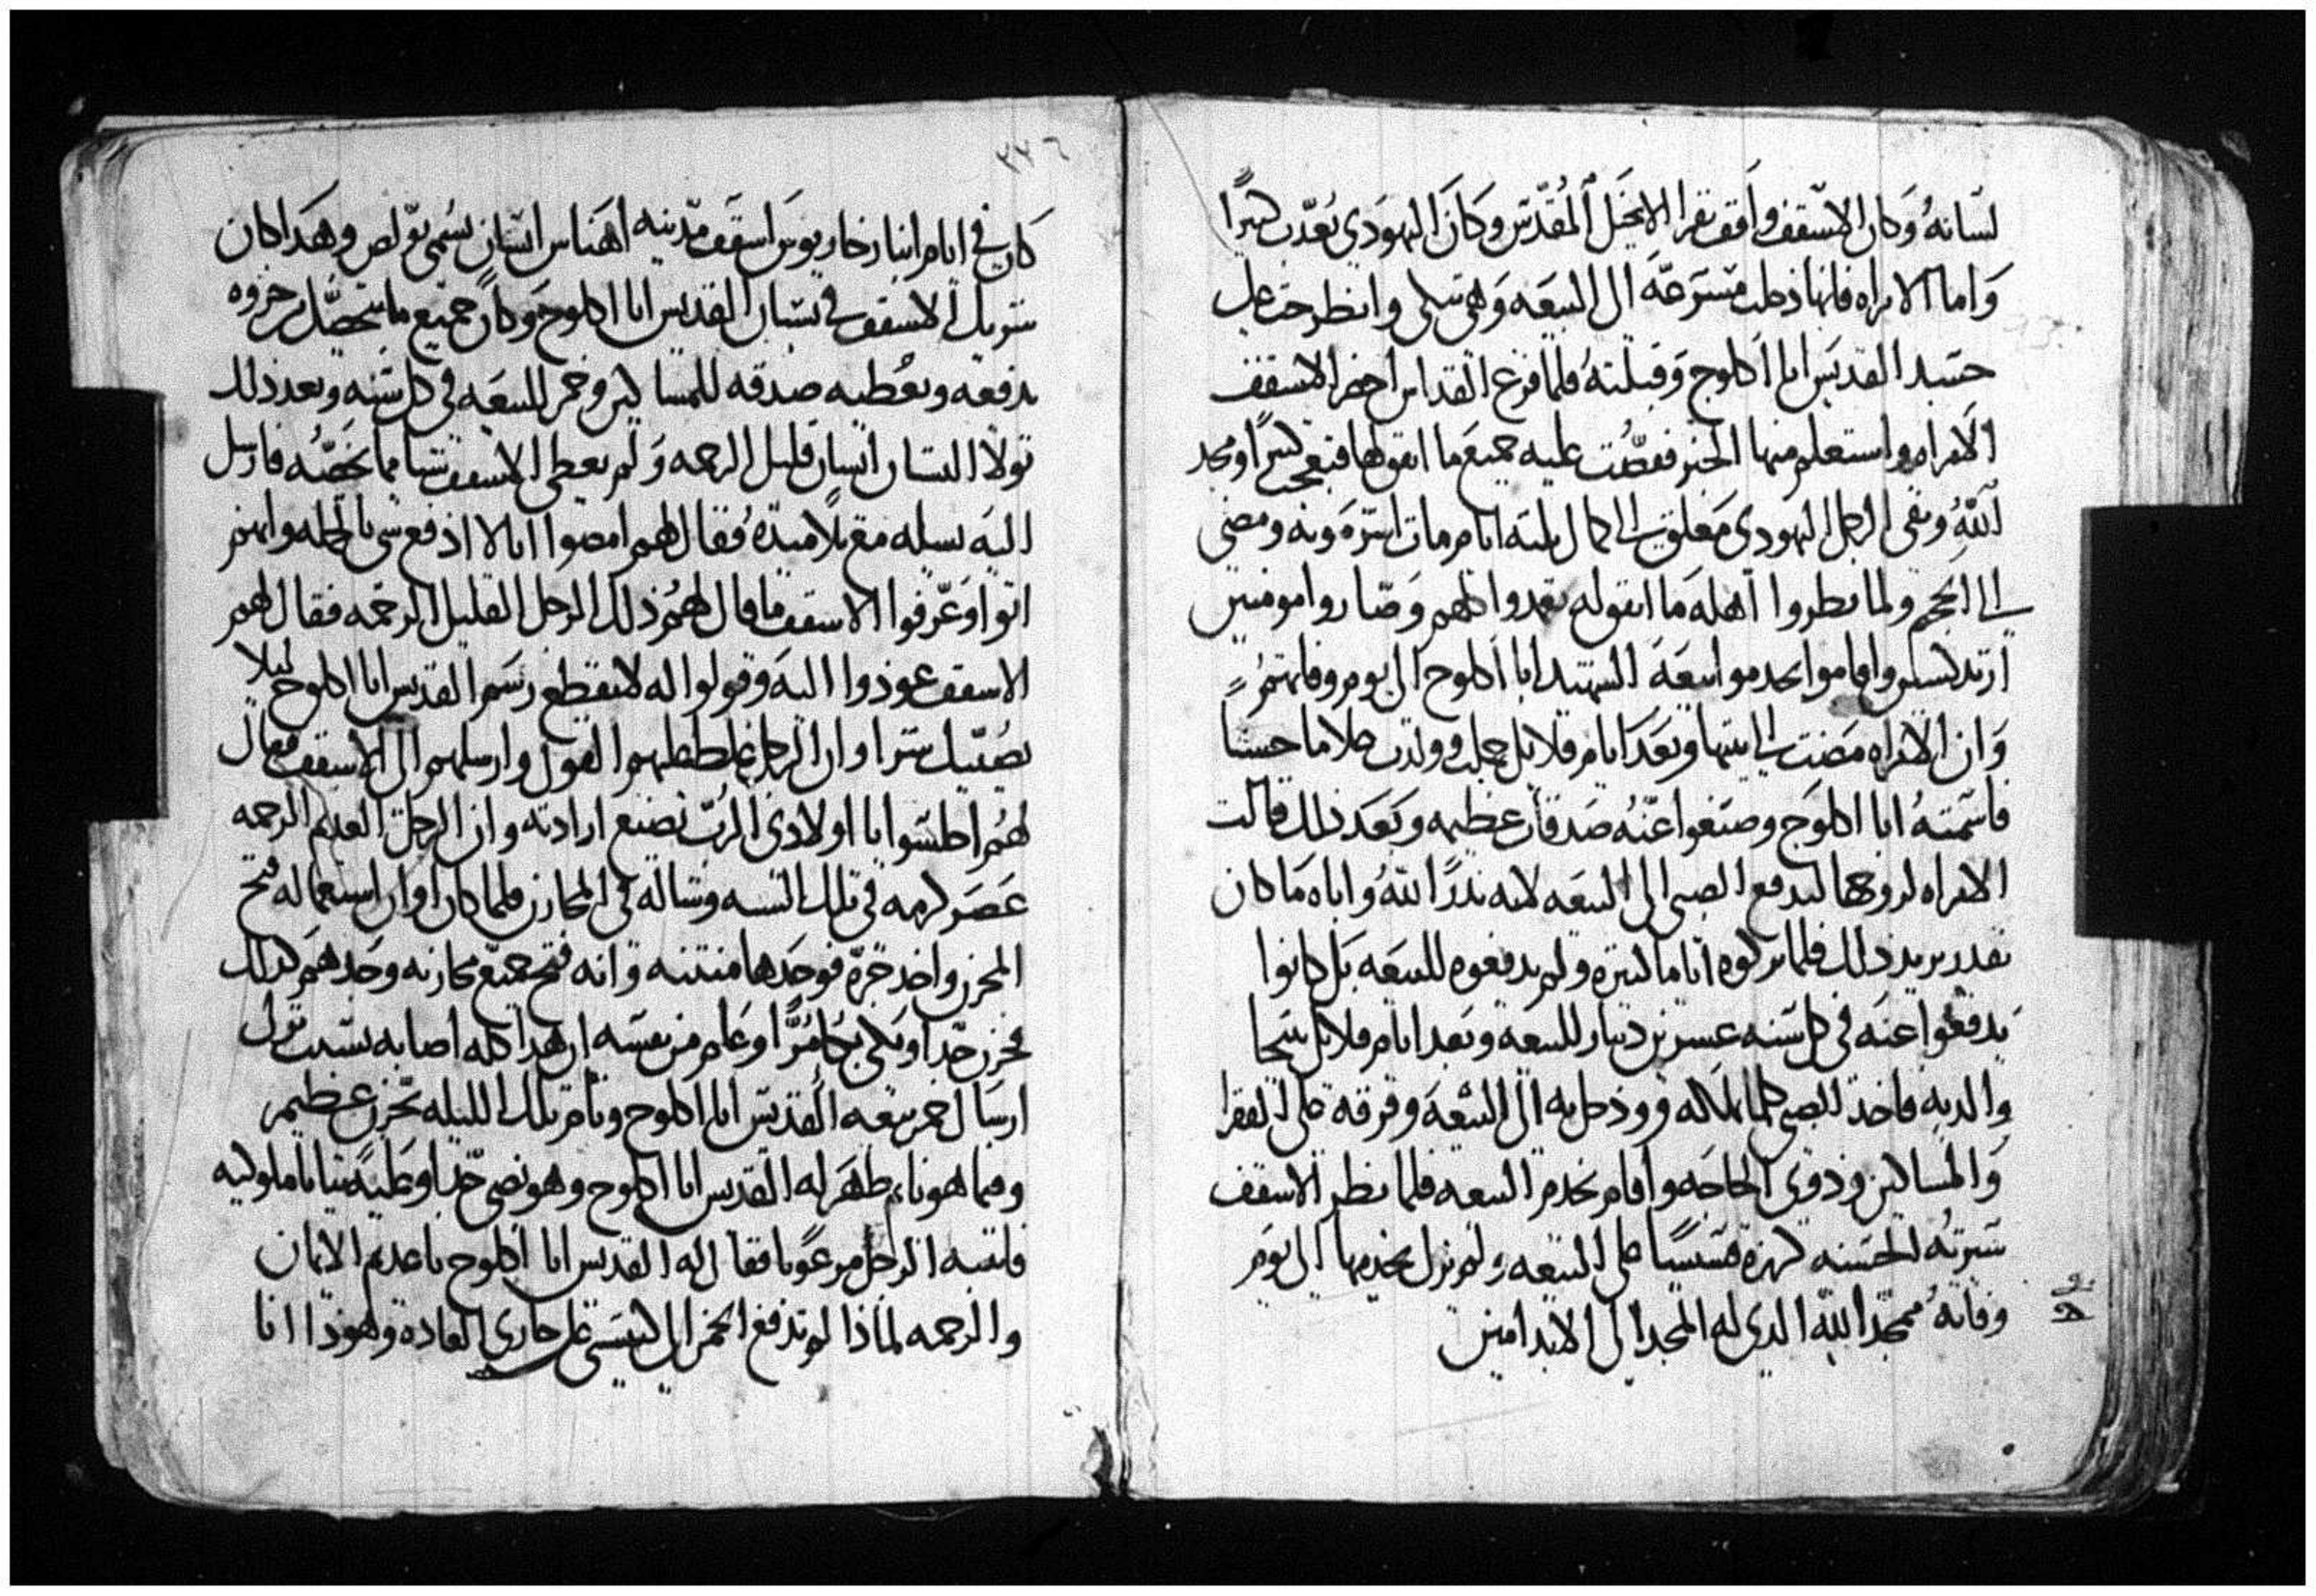 لسانه وكان الاسقف واقف يقرا الانجيل المقدس وكان اليهودي يعذب كثيرا
واما الامراه فانها دخلت مسرعه الى البيعه وهى تبكى وانطرحت على
جسد القديس ابا اكلوج وقبلته فلما فرغ القداس احضر الاسقف
الامراه واستعلم منها الخبر فقصت عليه جميع ما اتفق لها فتعجب كثيرا ومجد
الله وبقى الرجل اليهودى معلق الى كمال ثلثه ايام ومات اشر موته ومضى
الى الجحيم ولما نظروا اهله ما اتفق له تعمدوا كلهم وصاروا مومنين
ارتدكسيين واقاموا يخدموا بيعه الشهيد ابا اكلوج الى يوم وفاتهم
وان الامراه مضت الى بيتها وبعد ايام قلايل حبلت وولدت غلاما حسنا
فاسمته ابا اكلوج وصنعوا عنه صدقات عظيمه وبعد ذلك قالت
الامراه لزوجها ليدفع الصبى الى البيعه لانه ندرا لله واباه ما كان
يقدر يريد ذلك فلما تركوه اياما كثيره ولم يدفعوه للبيعه بل كانوا
يدفعوا عنه في كل سنه عشرين دينار للبيعه وبعد ايام قلايل تنيحا
والديه فاخذ الصبى كلما له ودخل به الى البيعه وفرقه على الفقرا
والمساكين وذوى الحاجه واقام يخدم البيعه فلما نظر الاسقف
سيرته الحسنه كرزه قسيسا على البيعه ولم يزل يخدمها الى يوم
وفاته ممجدا لله الذى له المجد الى الابد امين
٣٣٦
كان في ايام انبا زخاريوس اسقف مدينه اهناس انسان يسمى بولص وهكذا كان
شريك الاسقف في بستان القديس ابا اكلوج وكان جميع ما يتحصل من خمره
يدفعه ويعطيه صدقه للمساكين وخمر للبيعه في كل سنه وبعد ذلك
تولا البستان انسان قليل الرحمه ولم يعطى الاسقف شيا مما يخصه فارسل
اليه يسله مع تلاميذه فقال لهم امضوا انا لا ادفع شى بالجمله وانهم
اتوا وعرفوا الاسقف ما قال لهم ذلك الرجل القليل الرحمه فقال لهم
الاسقف عودوا اليه وقولوا له لا تقطع رسم القديس ابا اكلوج ليلا
يصيبك شرا وان الرجل غلظ عليهم القول وارسلهم الى الاسقف فقال
لهم اجلسوا يا اولادى الرب يصنع ارادته وان الرجل العديم الرحمه
عصر كرمه في تلك السنه وشاله في المخازن فلما كان اوان استعماله فتح
المخزن واخذ جره فوجدها منتنه وانه فتح جميع مخازنه وجدهم كذلك
فحزن جدا وبكى بكا مرا وعلم من نفسه ان هذا كله اصابه بسبب ترك
ارسال خمر بيعه القديس ابا اكلوج ونام تلك الليله بحزن عظيم
وفيما هو نايم ظهر له القديس ابا اكلوج وهو نضى جدا وعليه ثيابا ملوكيه
فانتبه الرجل مرعوبا فقال له القديس ابا اكلوج يا عديم الايمان
والرحمه لماذا لم تدفع الخمر الى كنيستى على جارى العاده وهوذا انا